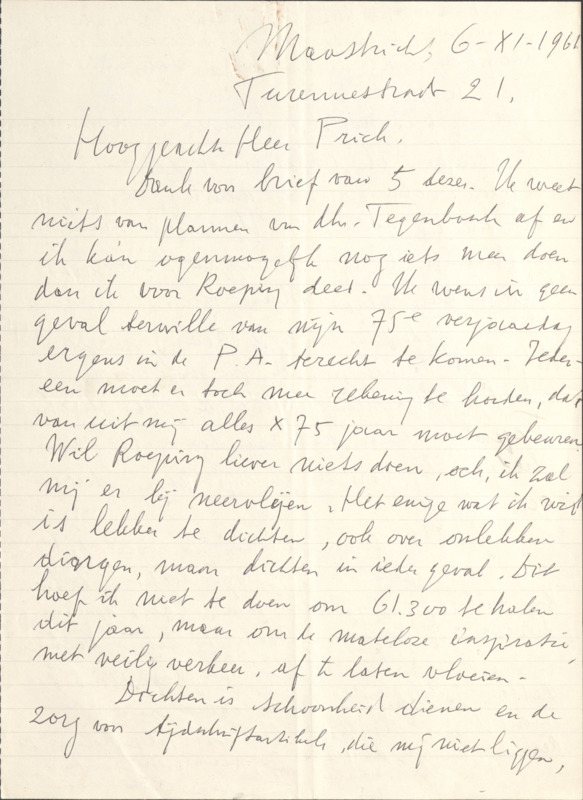 Maastricht, 6-XI-1961
Turennestraat 21.
Hooggeachte Heer Prick.
Dank voor brief van 5 dezer. Ik weet
niets van plannen van dhr. Tegenbosch af en
ik kán ogenmogelijk nog iets meer doen
dan ik voor Roeping deed. Ik wens in geen
geval terwille van mijn 75e verjaardag
ergens in de P.A. terecht te komen. Ieder-
een moet er toch mee rekening te houden, dat
van uit mij alles × 75 jaar moet gebeuren.
Wil Roeping liever niets doen, och, ik zal
mij er bij neervleijen. Het enige wat ik wil
is lekker te dichten, ook over onlekkere
dingen, maar dichten in ieder geval. Dit
hoef ik niet te doen om 61.300 te halen
dit jaar, maar om de mateloze inspiratie,
met veilig verkeer, af te laten vloeien.
Dichten is schoonheid dienen en de
zorg voor tijdschriftartikels, die mij niet liggen,